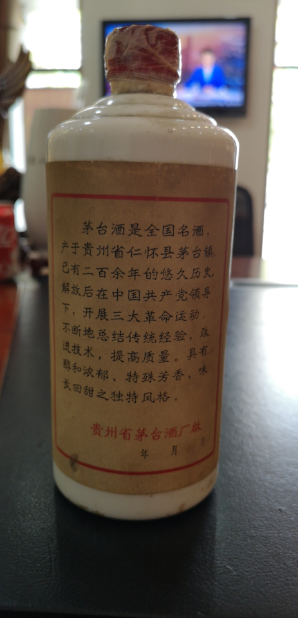 茅台酒是全国名酒,
产于贵州省仁怀县茅台镇
已有二百余年的悠久历史,
解放后在中国共产党领导
下,开展三大革命运动,
不断地总结传统经验,改
进技术,提高质量。具有
醇和浓郁、特殊芳香,味
长回甜之独特风格。
贵州省茅台酒厂敬
年 月